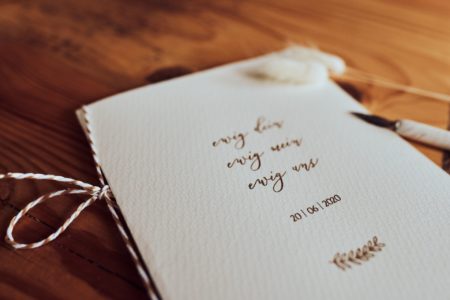 ewig dein
ewig mein
ewig uns
20|06|2020